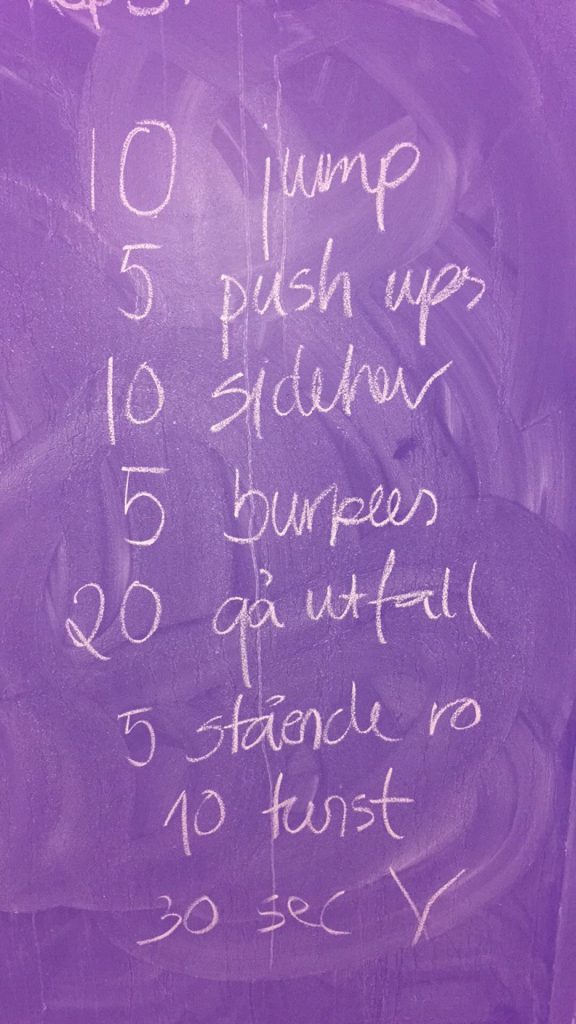 10 jump
5 push ups
10 sidehev
5 burpees
20 gå utfall
5 stående ro
10 twist
30 sec Y